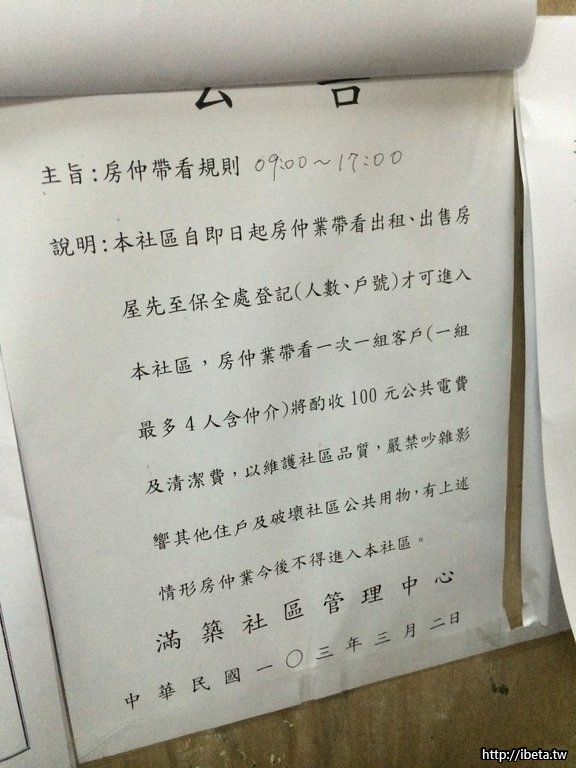 公告
主旨:房仲帶看規則 09:00~17:00
說明:本社區自即日起房仲業帶看出租、出售房
屋先至保全處登記(人數、戶號)才可進入
本社區，房仲業帶看一次一組客戶(一組
最多4人含仲介)將酌收100元公共電費
及清潔費，以維護社區品質，嚴禁吵雜影
響其他住戶及破壞社區公共用物，有上述
情形房仲業今後不得進入本社區。
滿築社區管理中心
中華民國一〇三年三月二日
http://ibeta.tw